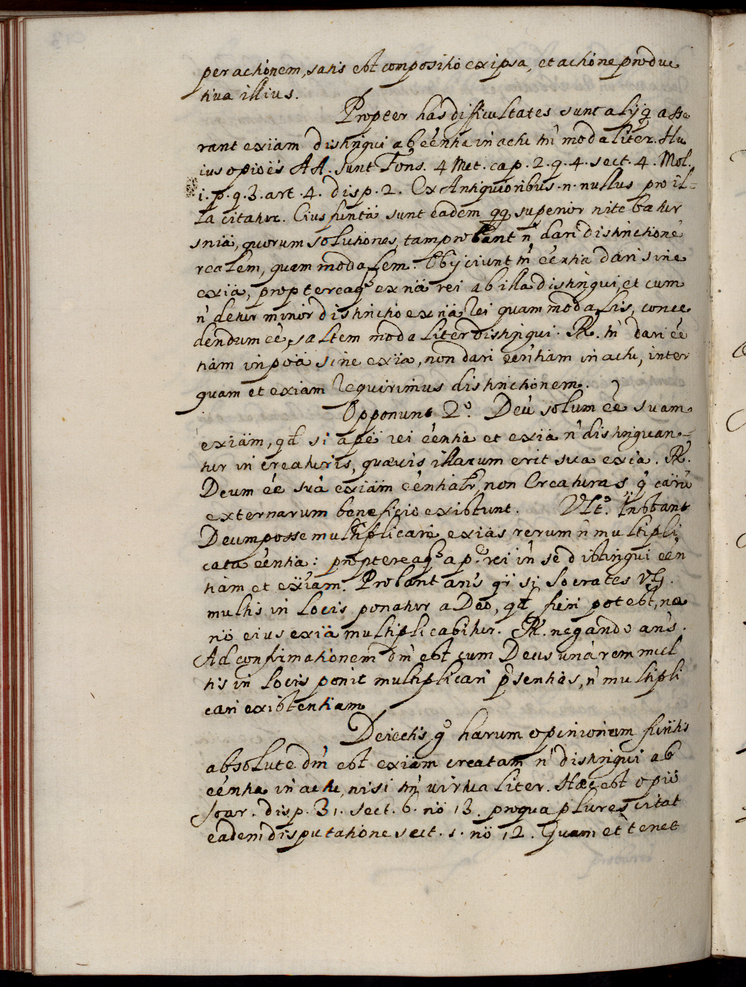 per actionem, satis est compositio ex ipsa, et actione produc
tiva illius.
Propter has difficultates sunt alijq̃ asse
rant exiam distingui ab eẽntia in actu tm̃ modaliter. Hu
ius opiõis AA. sunt Fons. 4 Met. cap. 2. q. 4. sect. 4. Mol.
1. p. q. 3. art. 4. disp. 2. Ex Antiquioribus n. nullus pro il-
la citatur. Eius funtã sunt eadem qq̃ superior nitebatur
sniã, quorum solutiones, tam probant ñ dari distinctionẽ
realem, quam modalem. Obijciunt tñ eẽntia dari sine
exiã, proptereaq̃ ex nã rei ab illa distingui, et cum
ñ detur minor distinctio ex nã rei quam modalis, conce
dendum eẽ, saltem modaliter distingui. R. tñ dari eẽ
tiam in põa sine exia, non dari eẽntiam in actu, inter
quam et exiam requirimus distinctionem.
Opponunt 2º. Deũ solum eẽ suam
exiãm, qd̃ si a pẽ rei eẽntia et exiã ñ distinguan-
tur in creaturis, quævis illarum erit sua exia. R.
Deum eẽ suã exiãm eẽntialr̃, non Creaturas q̃ carũ
externarum beneficio existunt. Ultº. Instant
Deum posse multiplicare exias rerum ñ multipli
cata eẽntia: proptereaq̃ a pẽ rei in se distingui eẽn
tiam et exiam. Probant ans qr̃ si Socrates Vg.
multis in locis ponatur a Deo, qd̃ fieri potest, nẽ
nõ eius exiã multiplicabitur. R. negando ans.
Ad confirmationem dm̃ est cum Deus unã rem mul
tis in locis ponit multiplicari p̃sentias, ñ multipli
cari existentiam
Deiectis gº harum opinionum funtis
absolute dm̃ est exiam creatam ñ distingui ab
eẽntia in actu, nisi tm̃ virtualiter. Hæc est opiõ
Soar. disp. 31. sect. 6. nõ 13. pro qua plures citat
eadem disputatione sect. 1. nõ 12. Quam et tenet